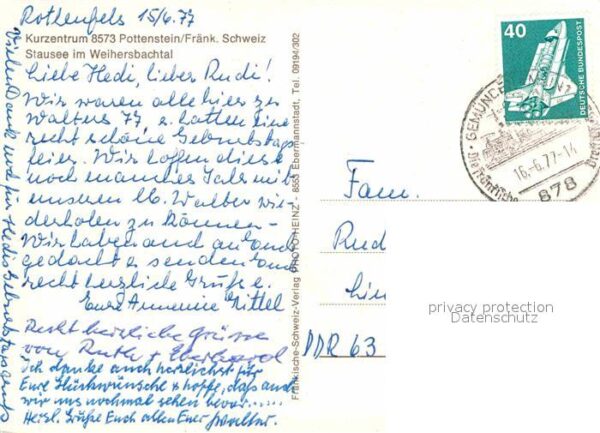 Rothenfels 15/6.77
Kurzentrum 8573 Pottenstein/Fränk. Schweiz
Stausee im Weihersbachtal
Liebe Hedi, lieber Rudi!
Wir waren alle hier zu
Walters 77 u. hatten eine
recht schöne Geburtstags
feier. Wir hoffen dies
noch manches Jahr mit
unserem lb. Walter wie-
derholen zu können.
Wir haben auch an Euch
gedacht u. senden Euch
recht herzliche Grüße.
Eure Annemie Zittel
Recht herzliche Grüsse
von Ruth + Eberhard
Ich danke auch herzlichst für
Eure Glückwünsche + hoffe, daß auch
wir uns nochmal sehen
Herzl. Grüße Euch allen Euer Walter.
Vielen Dank auch für Hedis Geburtstagsgruß
Fränkische-Schweiz-Verlag PHOTO-HEINZ - 8553 Ebermannstadt, Tel. 09194/302
40
DEUTSCHE BUNDESPOST
GEMÜNDEN
16.-6.77-14
Die fränkische
878
Fam.
Rud
DDR 63
privacy protection
Datenschutz